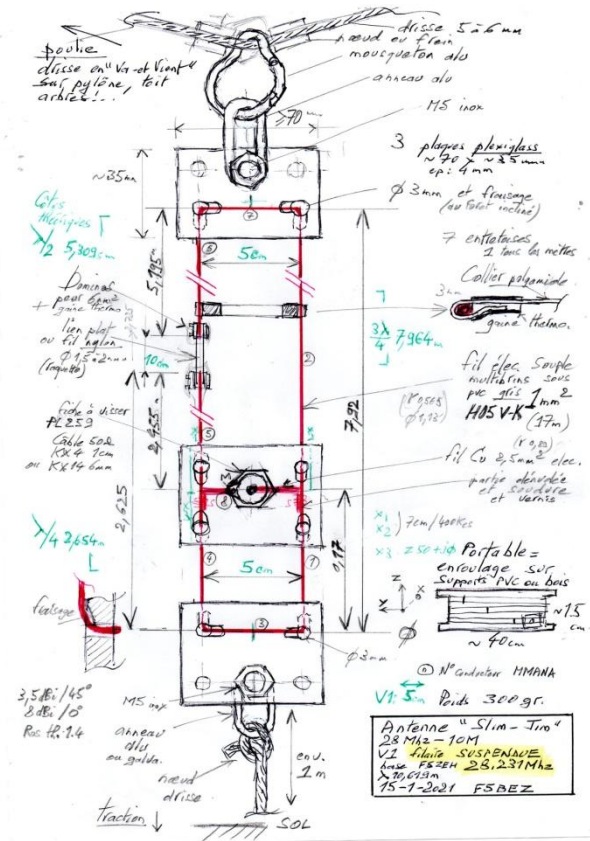 poulie
drisse en "Va-et-Vient"
sur pylône, toit
arbres...
drisse 5 à 6 mm
nœud ou frein
mousqueton alu
anneau alu
M5 inox
≥70 mm
~35mm
3 plaques plexiglass
~70 x ~35 mm
ep: 4mm
φ 3mm et fraisage
(au foret incliné)
7 entretoises
1 tous les mètres
Collier polyamide
3mm
gaine thermo.
Côtes
théoriques
λ/2 5,309m
5,195m
5cm
Dominos
pour 6mm²
+ gaine thermo
lien plat
ou fil nylon
φ 1,5 à 2mm
(raquette)
10cm
3λ/4 7,964m
7,92
fil élec. Souple
multibrins sous
pvc gris 1mm²
H05 V-K
(17m)
2,455m
2,625
fiche à visser
PL259
Câble 50Ω
KX4 1cm
ou KX14 6mm
fil Cu 2,5mm² elec.
partie dénudée
et soudure
et vernis
x1
x2
7cm/400KHz
x3
Z50+jφ
λ/4 2,654m
5cm
0,17
Portable =
enroulage sur
Supports PVC ou bois
~15
cm
~40cm
fraisage
φ3mm
Z
X
Y
N° Conducteur MMANA
V1: 5cm Poids 300gr.
3,5dBi/45°
8dBi/0°
Ros th. 1.4
M5 inox
anneau
alu
ou galva.
nœud
drisse
env.
1m
traction
SOL
Antenne "Slim-Jim"
28Mhz - 10M
V1 filaire SUSPENDUE
base F5ZEH 28,231Mhz
λ 10,619m
15-1-2021 F5BEZ